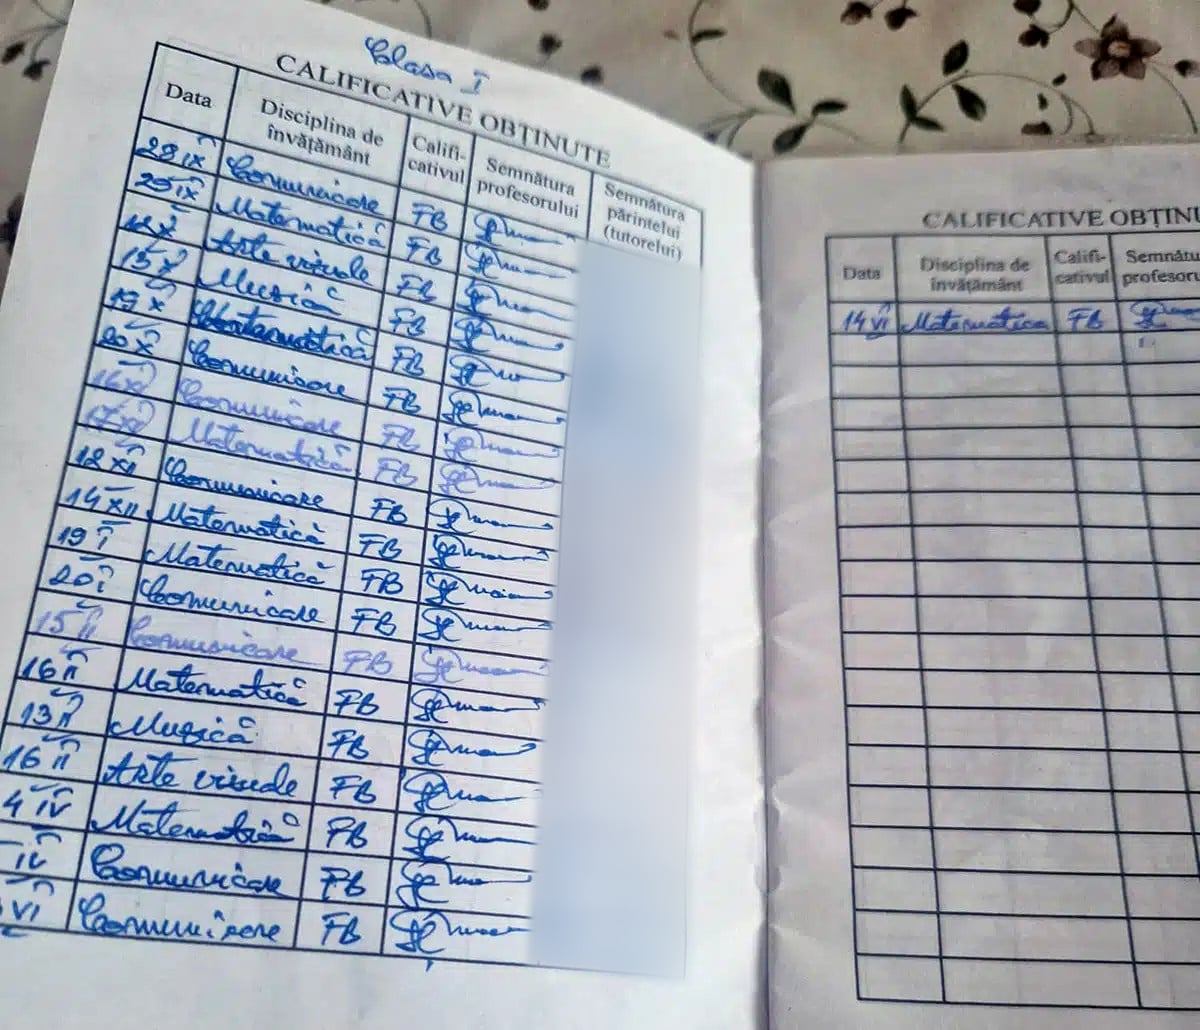 Clasa I
CALIFICATIVE OBȚINUTE
Data Disciplina de învățământ Califi-cativul Semnătura profesorului Semnătura părintelui (tutorelui)
IX Comunicare FB
25 IX Matematică FB
12 X Arte vizuale FB
13 X Muzică FB
19 X Matematică FB
20 X Comunicare FB
16 XI Comunicare FB
17 XI Matematică FB
12 XII Comunicare FB
14 XII Matematică FB
19 I Matematică FB
20 I Comunicare FB
15 II Comunicare FB
16 II Matematică FB
13 II Muzică FB
16 II Arte vizuale FB
4 IV Matematică FB
IV Comunicare FB
VI Comunicare FB
CALIFICATIVE OBȚINU
Data Disciplina de învățământ Califi-cativul Semnătu profesoru
14 VI Matematica FB